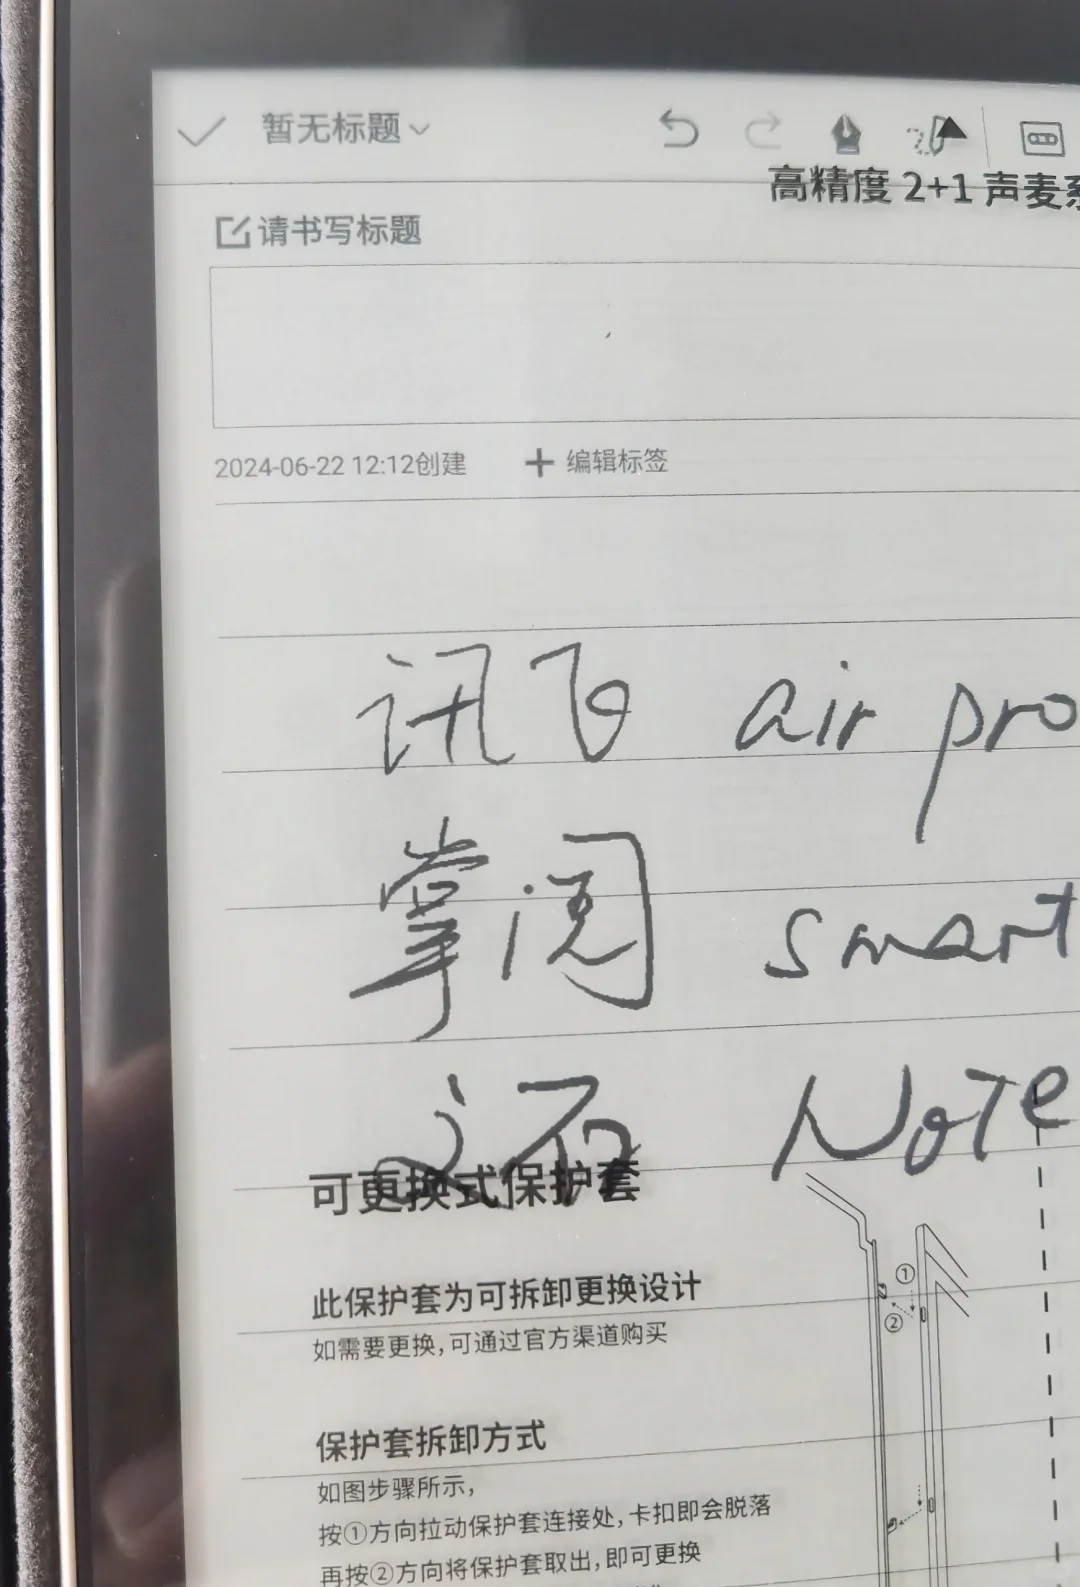 暂无标题
高精度 2+1 声麦
请书写标题
2024-06-22 12:12创建 + 编辑标签
讯飞 air pro
掌阅 smart
文石 Note
可更换式保护套
此保护套为可拆卸更换设计
如需要更换,可通过官方渠道购买
①
②
保护套拆卸方式
如图步骤所示,
按①方向拉动保护套连接处,卡扣即会脱落
再按②方向将保护套取出,即可更换